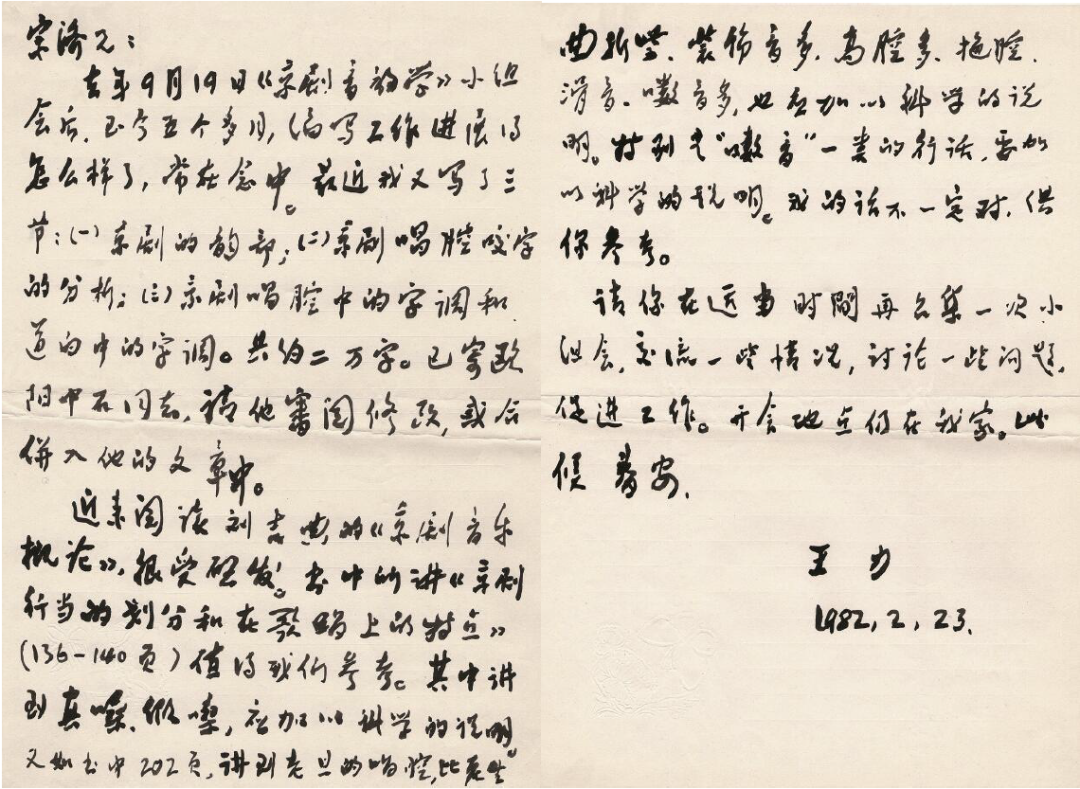 宗济兄：
去年9月19日《京剧音韵学》小组
会后，已今五个多月，编写工作进展得
怎么样了，常在念中。最近我又写了三
节：（一）京剧的韵部；（二）京剧唱腔咬字
的分析；（三）京剧唱腔中的字调和
道白中的字调。共约二万字。已寄欧
阳中石同志，请他审阅修改，或合
併入他的文章中。
近来阅读刘吉典的《京剧音乐
概论》，很受启发。书中所讲《京剧
行当的划分和在歌唱上的特点》
（136-140页）值得我们参考。其中讲
到真嗓、假嗓，应加以科学的说明。
又如书中202页，讲到老旦的唱腔，比老生
曲折些、装饰音多、高腔多、拖腔、
滑音、嗽音多，也应加以科学的说
明。特别是“嗽音”一类的行话，要加
以科学的说明。我的话不一定对，供
你参考。
请你在适当时間再召集一次小
组会，交流一些情况，讨论一些问题，
促进工作。开会地点仍在我家。此
候 著安.
王力
1982, 2, 23.